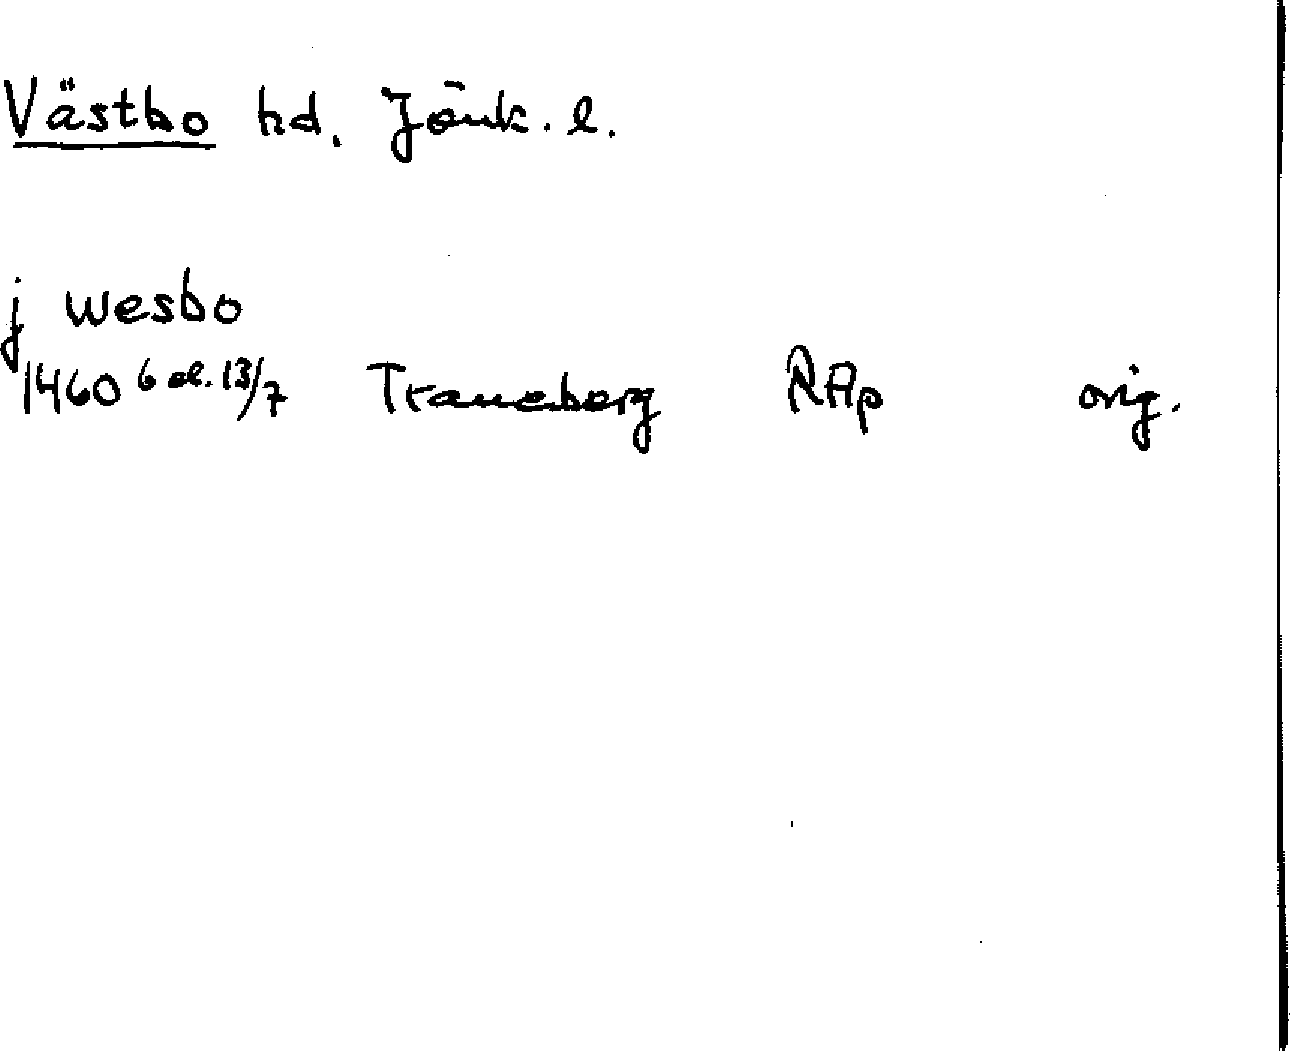 Västbo hd. Jönk. l.
j wesbo
1460 6 el. 13/7 Traneberg RAp orig.